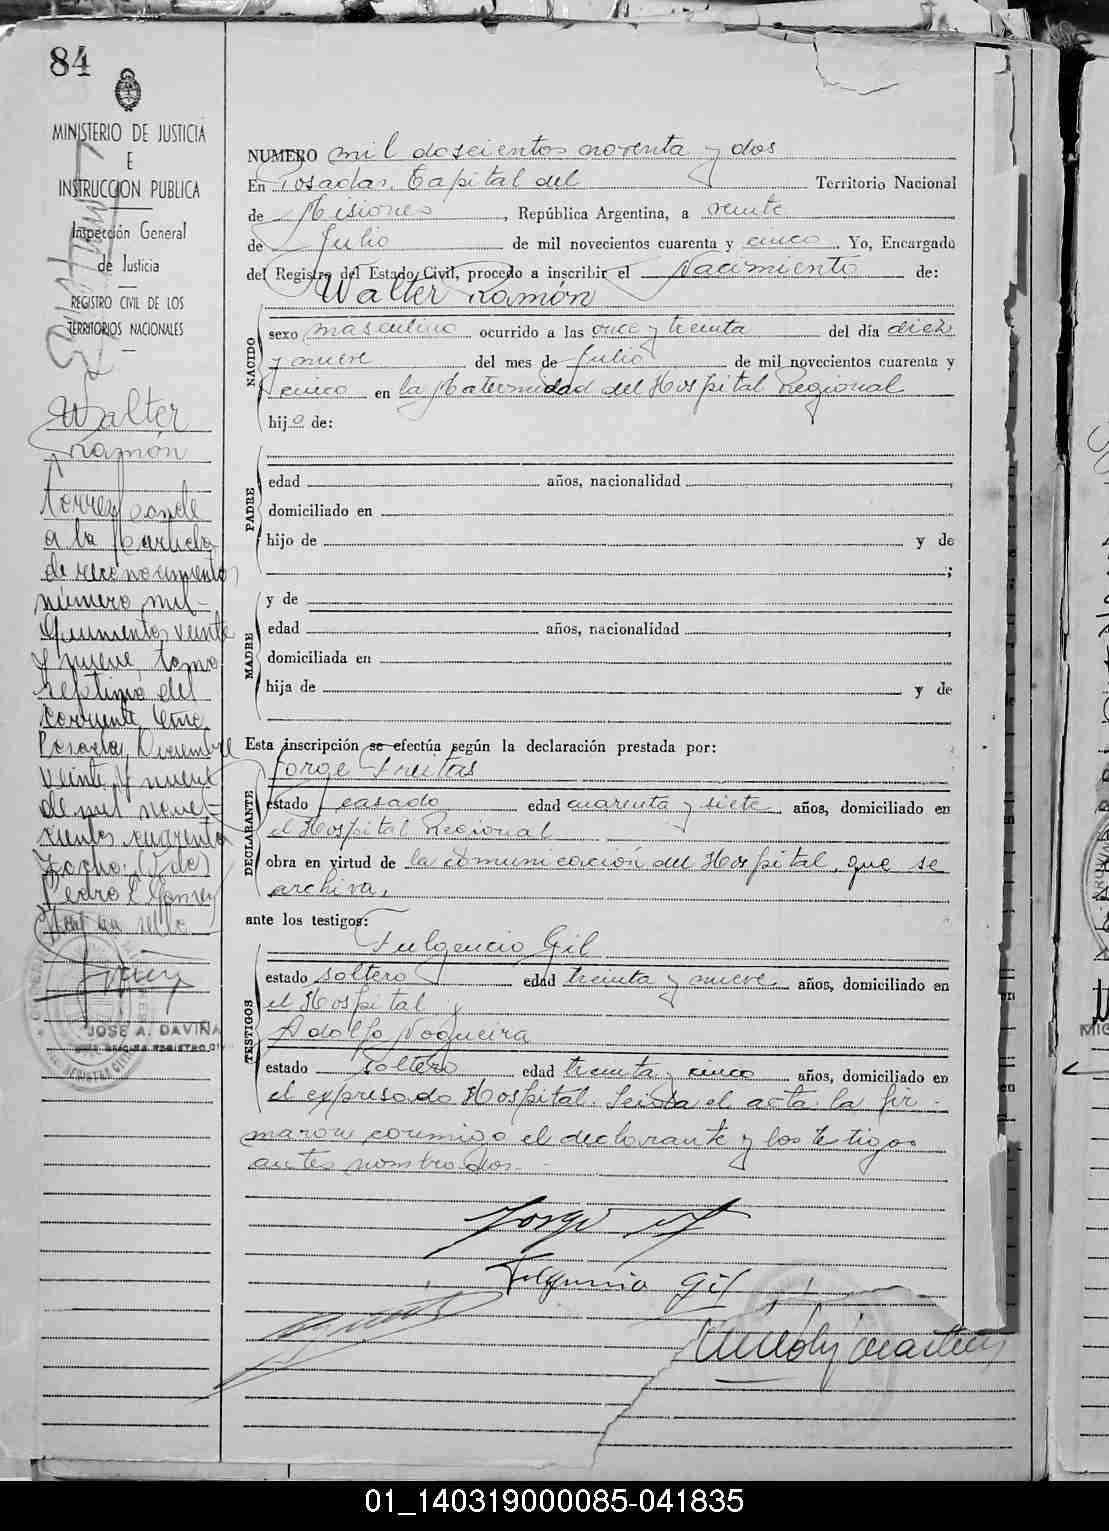 84
MINISTERIO DE JUSTICIA
E
INSTRUCCION PUBLICA
Inspección General
de Justicia
REGISTRO CIVIL DE LOS
TERRITORIOS NACIONALES
Walter
Ramón
Corresponde
a la partida
de reconocimiento
número mil
quinientos veinte
y nueve, tomo
séptimo del
corriente año.
Posadas, Diciembre
veinte y nueve
de mil nove-
cientos cuarenta
y ocho.
Pedro
Hay un sello
JOSE A. DAVIÑA
NUMERO mil doscientos noventa y dos
En Posadas, Capital del Territorio Nacional
de Misiones, República Argentina, a veinte
de Julio de mil novecientos cuarenta y cinco. Yo, Encargado
del Registro del Estado Civil, procedo a inscribir el Nacimiento de:
Walter Ramón
NACIDO
sexo masculino ocurrido a las once y treinta del día diez
y nueve del mes de Julio de mil novecientos cuarenta y
cinco en la Maternidad del Hospital Regional
hijo de:
PADRE
edad años, nacionalidad
domiciliado en
hijo de y de
;
MADRE
y de
edad años, nacionalidad
domiciliada en
hija de y de
Esta inscripción se efectúa según la declaración prestada por:
Jorge Freitas
DECLARANTE
estado casado edad cuarenta y siete años, domiciliado en
el Hospital Regional
obra en virtud de la comunicación del Hospital, que se
archiva,
ante los testigos:
Fulgencio Gil
TESTIGOS
estado soltero edad treinta y nueve años, domiciliado en
el Hospital y
Adolfo Nogueira
estado soltero edad treinta y cinco años, domiciliado en
el expresado Hospital. Leída el acta la fir-
maron conmigo el declarante y los testigos
antes nombrados.-
Jorge
Fulgencio Gil
01_140319000085-041835